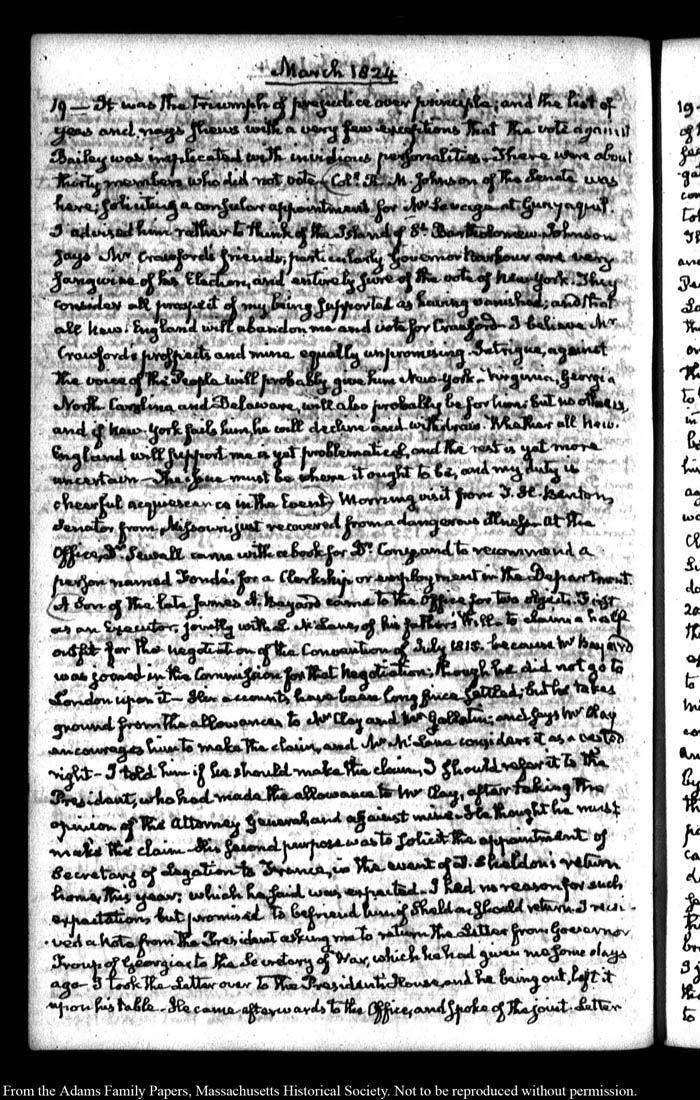 March 1824
19 — It was the triumph of prejudice over principle; and the list of
yeas and nays shews with a very few exceptions that the vote against
Bailey was implicated with invidious personalities. There were about
thirty members who did not vote. (Coll. R. M. Johnson of the Senate was
here; soliciting a consular appointment for Mr Savage at Guayaquil.
I advised him rather to think of the Island of St. Bartholomew. Johnson
says Mr Crawford's friends, particularly Governor Barbour are very
sanguine of his Election, and entirely sure of the vote of New York. They
consider all prospect of my being supported as having vanished; and that
all New-England will abandon me and vote for Crawford. I believe Mr
Crawford's prospects and mine equally unpromising. Intrigue, against
the voice of the People will probably give him New-York. Virginia, Georgia
North Carolina and Delaware, will also probably be for him; but no others,
and if New-York fails him, he will decline and withdraw. Whether all New-
England will support me is yet problematical, and the rest is yet more
uncertain — The issue must be where it ought to be, and my duty is
cheerful acquiescence in the Event) Morning visit from T. H. Benton,
Senator from Missouri, just recovered from a dangerous illness. At the
Office, Dr. Sewall came with a book for Dr. Cony and to recommend a
person named Fonda for a Clerkship or employment in the Department.
(A Son of the late James A. Bayard came to the Office for two objects. First
as an Executor, jointly with L. McLane, of his father's Will — to claim a half
outfit for the negotiation of the Convention of July 1815. because Mr Bayard
was joined in the Commission for that Negotiation; though he did not go to
London upon it — His accounts have been long since settled; but he takes
ground from the allowances to Mr Clay and Mr Gallatin; and says Mr Clay
encourages him to make the claim, and Mr McLane considers it as a vested
right — I told him if he should make the claim, I should refer it to the
President, who had made the allowance to Mr Clay, after taking the
opinion of the Attorney General and against mine. He thought he must
make the claim. His second purpose was to solicit the appointment of
Secretary of Legation to France, in the event of D. Sheldon's return
home this year; which he said was expected. I had no reason for such
expectation, but promised to befriend him if Sheldon should return. I recei-
ved a Note from the President asking me to return the Letter from Governor
Troup of Georgia to the Secretary of War, which he had given me some days
ago — I took the Letter over to the President's House, and he being out, left it
upon his table. He came afterwards to the Office, and spoke of the joint-Letter
19
From the Adams Family Papers, Massachusetts Historical Society. Not to be reproduced without permission.